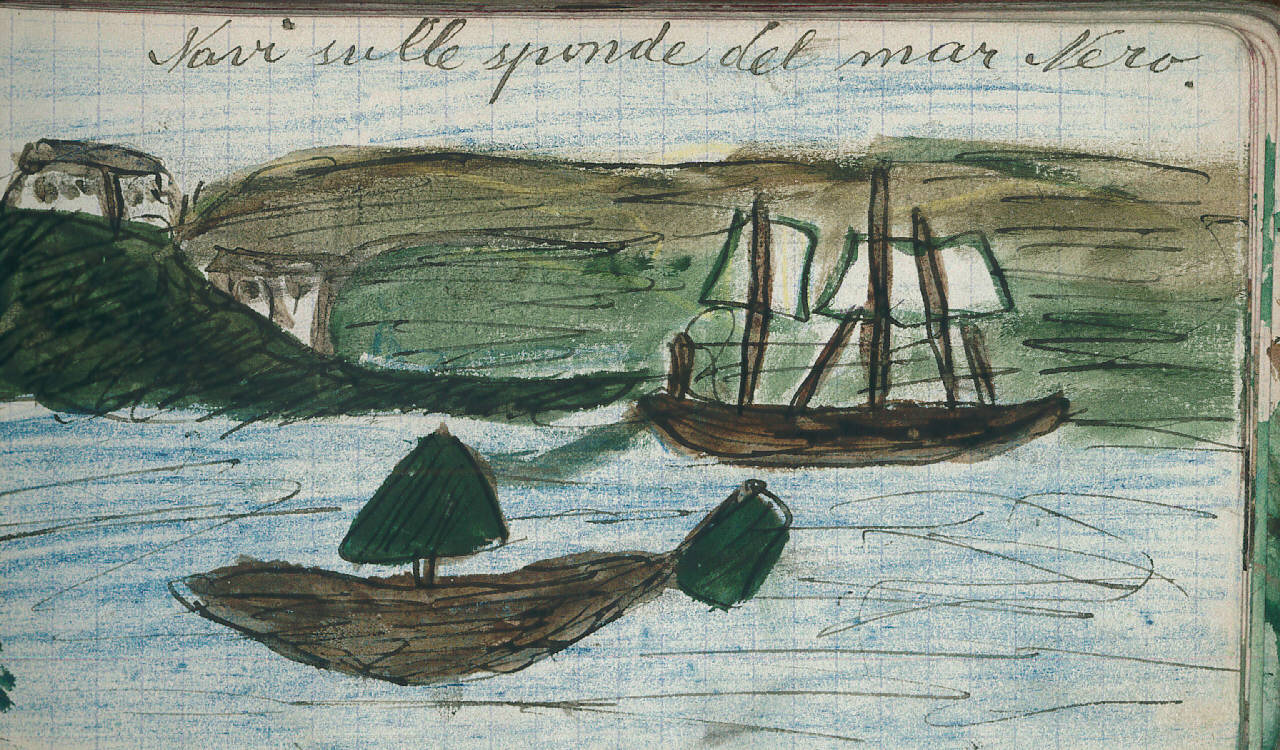 Navi sulle sponde del mar Nero.